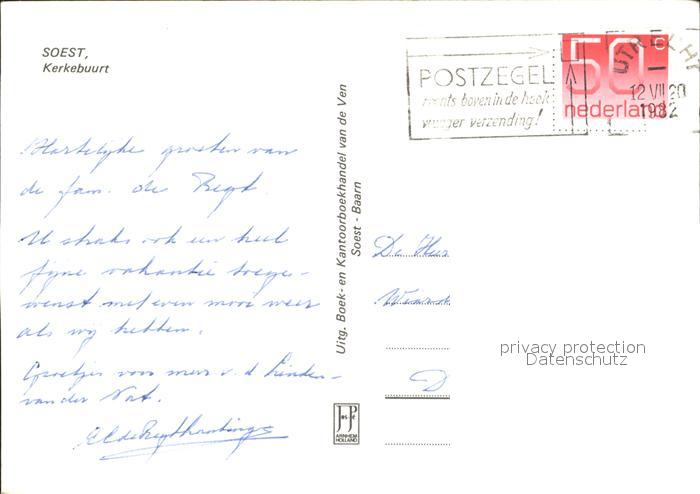 SOEST,
Kerkebuurt
POSTZEGEL
rechts boven in de hoek
vlugger verzending!
50 c
nederland
UTRECHT
12 VII 20
1982
Hartelijke groeten van
de fam. de Regt.
U straks ook een heel
fijne vakantie toege-
wenst met even mooi weer
als wij hebben.
Groetjes voor mevr v. d. Linden-
van der Vat.
Uitg. Boek- en Kantoorboekhandel van de Ven
Soest - Baarn
De Heer
D
JosPé
ARNHEM
HOLLAND
privacy protection
Datenschutz